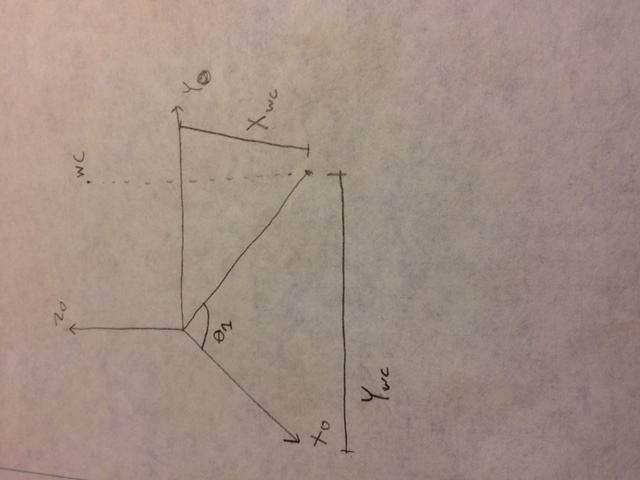 Z0
WC
Y0
θ1
XWC
X0
YWC